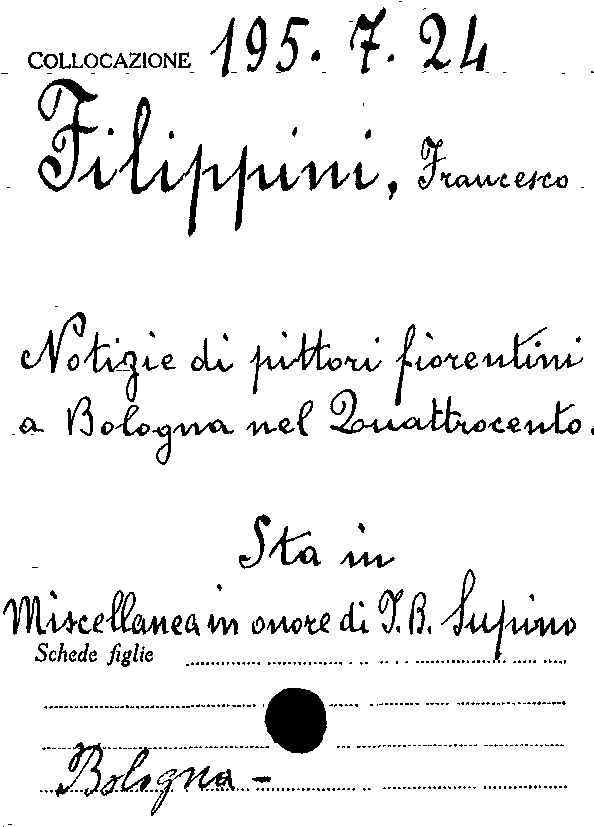 COLLOCAZIONE 195. 7. 24
Filippini, Francesco
Notizie di pittori fiorentini
a Bologna nel Quattrocento.
Sta in
Miscellanea in onore di I. B. Supino
Schede figlie
Bologna -